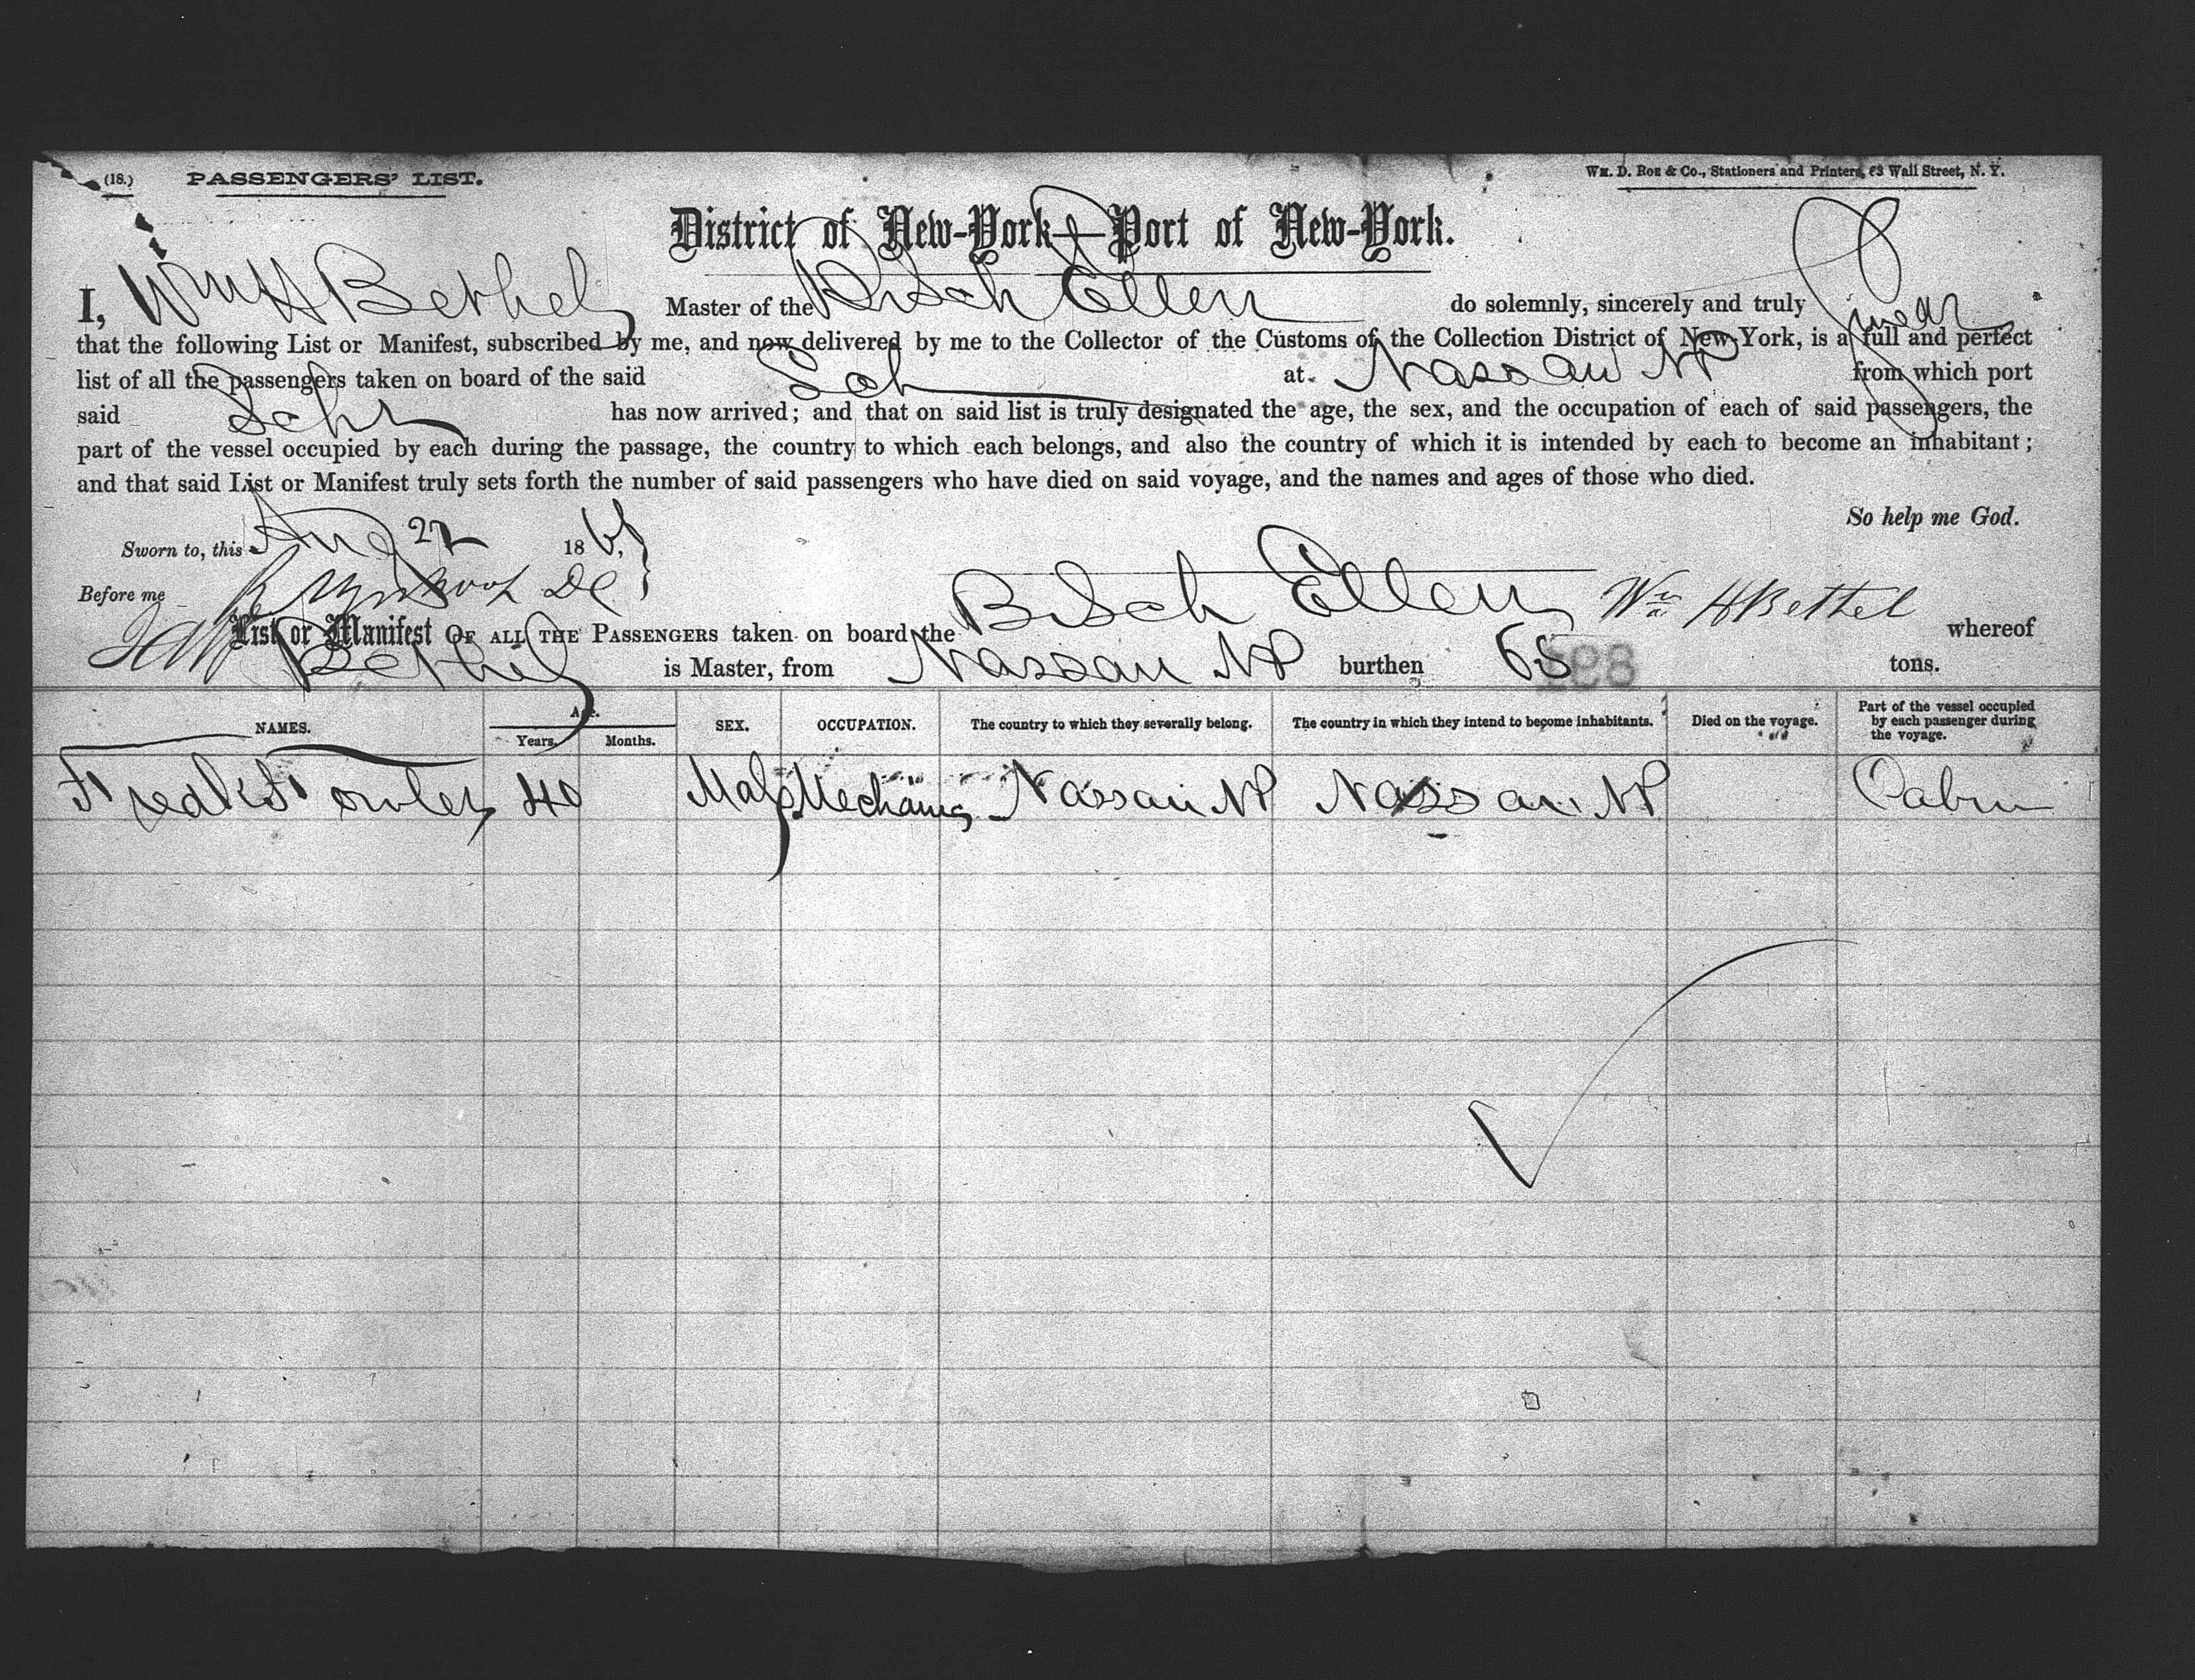 (18.) PASSENGERS' LIST.
WM. D. ROE & Co., Stationers and Printers, 63 Wall Street, N. Y.
District of New-York—Port of New-York.
I, Wm H Bethel Master of the BrSch Ellen do solemnly, sincerely and truly swear
that the following List or Manifest, subscribed by me, and now delivered by me to the Collector of the Customs of the Collection District of New-York, is a full and perfect
list of all the passengers taken on board of the said Sch at Nassau NP from which port
said Schr has now arrived; and that on said list is truly designated the age, the sex, and the occupation of each of said passengers, the
part of the vessel occupied by each during the passage, the country to which each belongs, and also the country of which it is intended by each to become an inhabitant;
and that said List or Manifest truly sets forth the number of said passengers who have died on said voyage, and the names and ages of those who died.
So help me God.
Sworn to, this Aug 22 18
Before me
Wm H Bethel
List or Manifest OF ALL THE PASSENGERS taken on board the BrSch Ellen whereof
Bethel is Master, from Nassau NP burthen 68 tons.
NAMES. Age. Years. Months. SEX. OCCUPATION. The country to which they severally belong. The country in which they intend to become inhabitants. Died on the voyage. Part of the vessel occupied by each passenger during the voyage.
Fredk Fowler 40 Male Mechanic Nassau NP Nassau NP Cabin